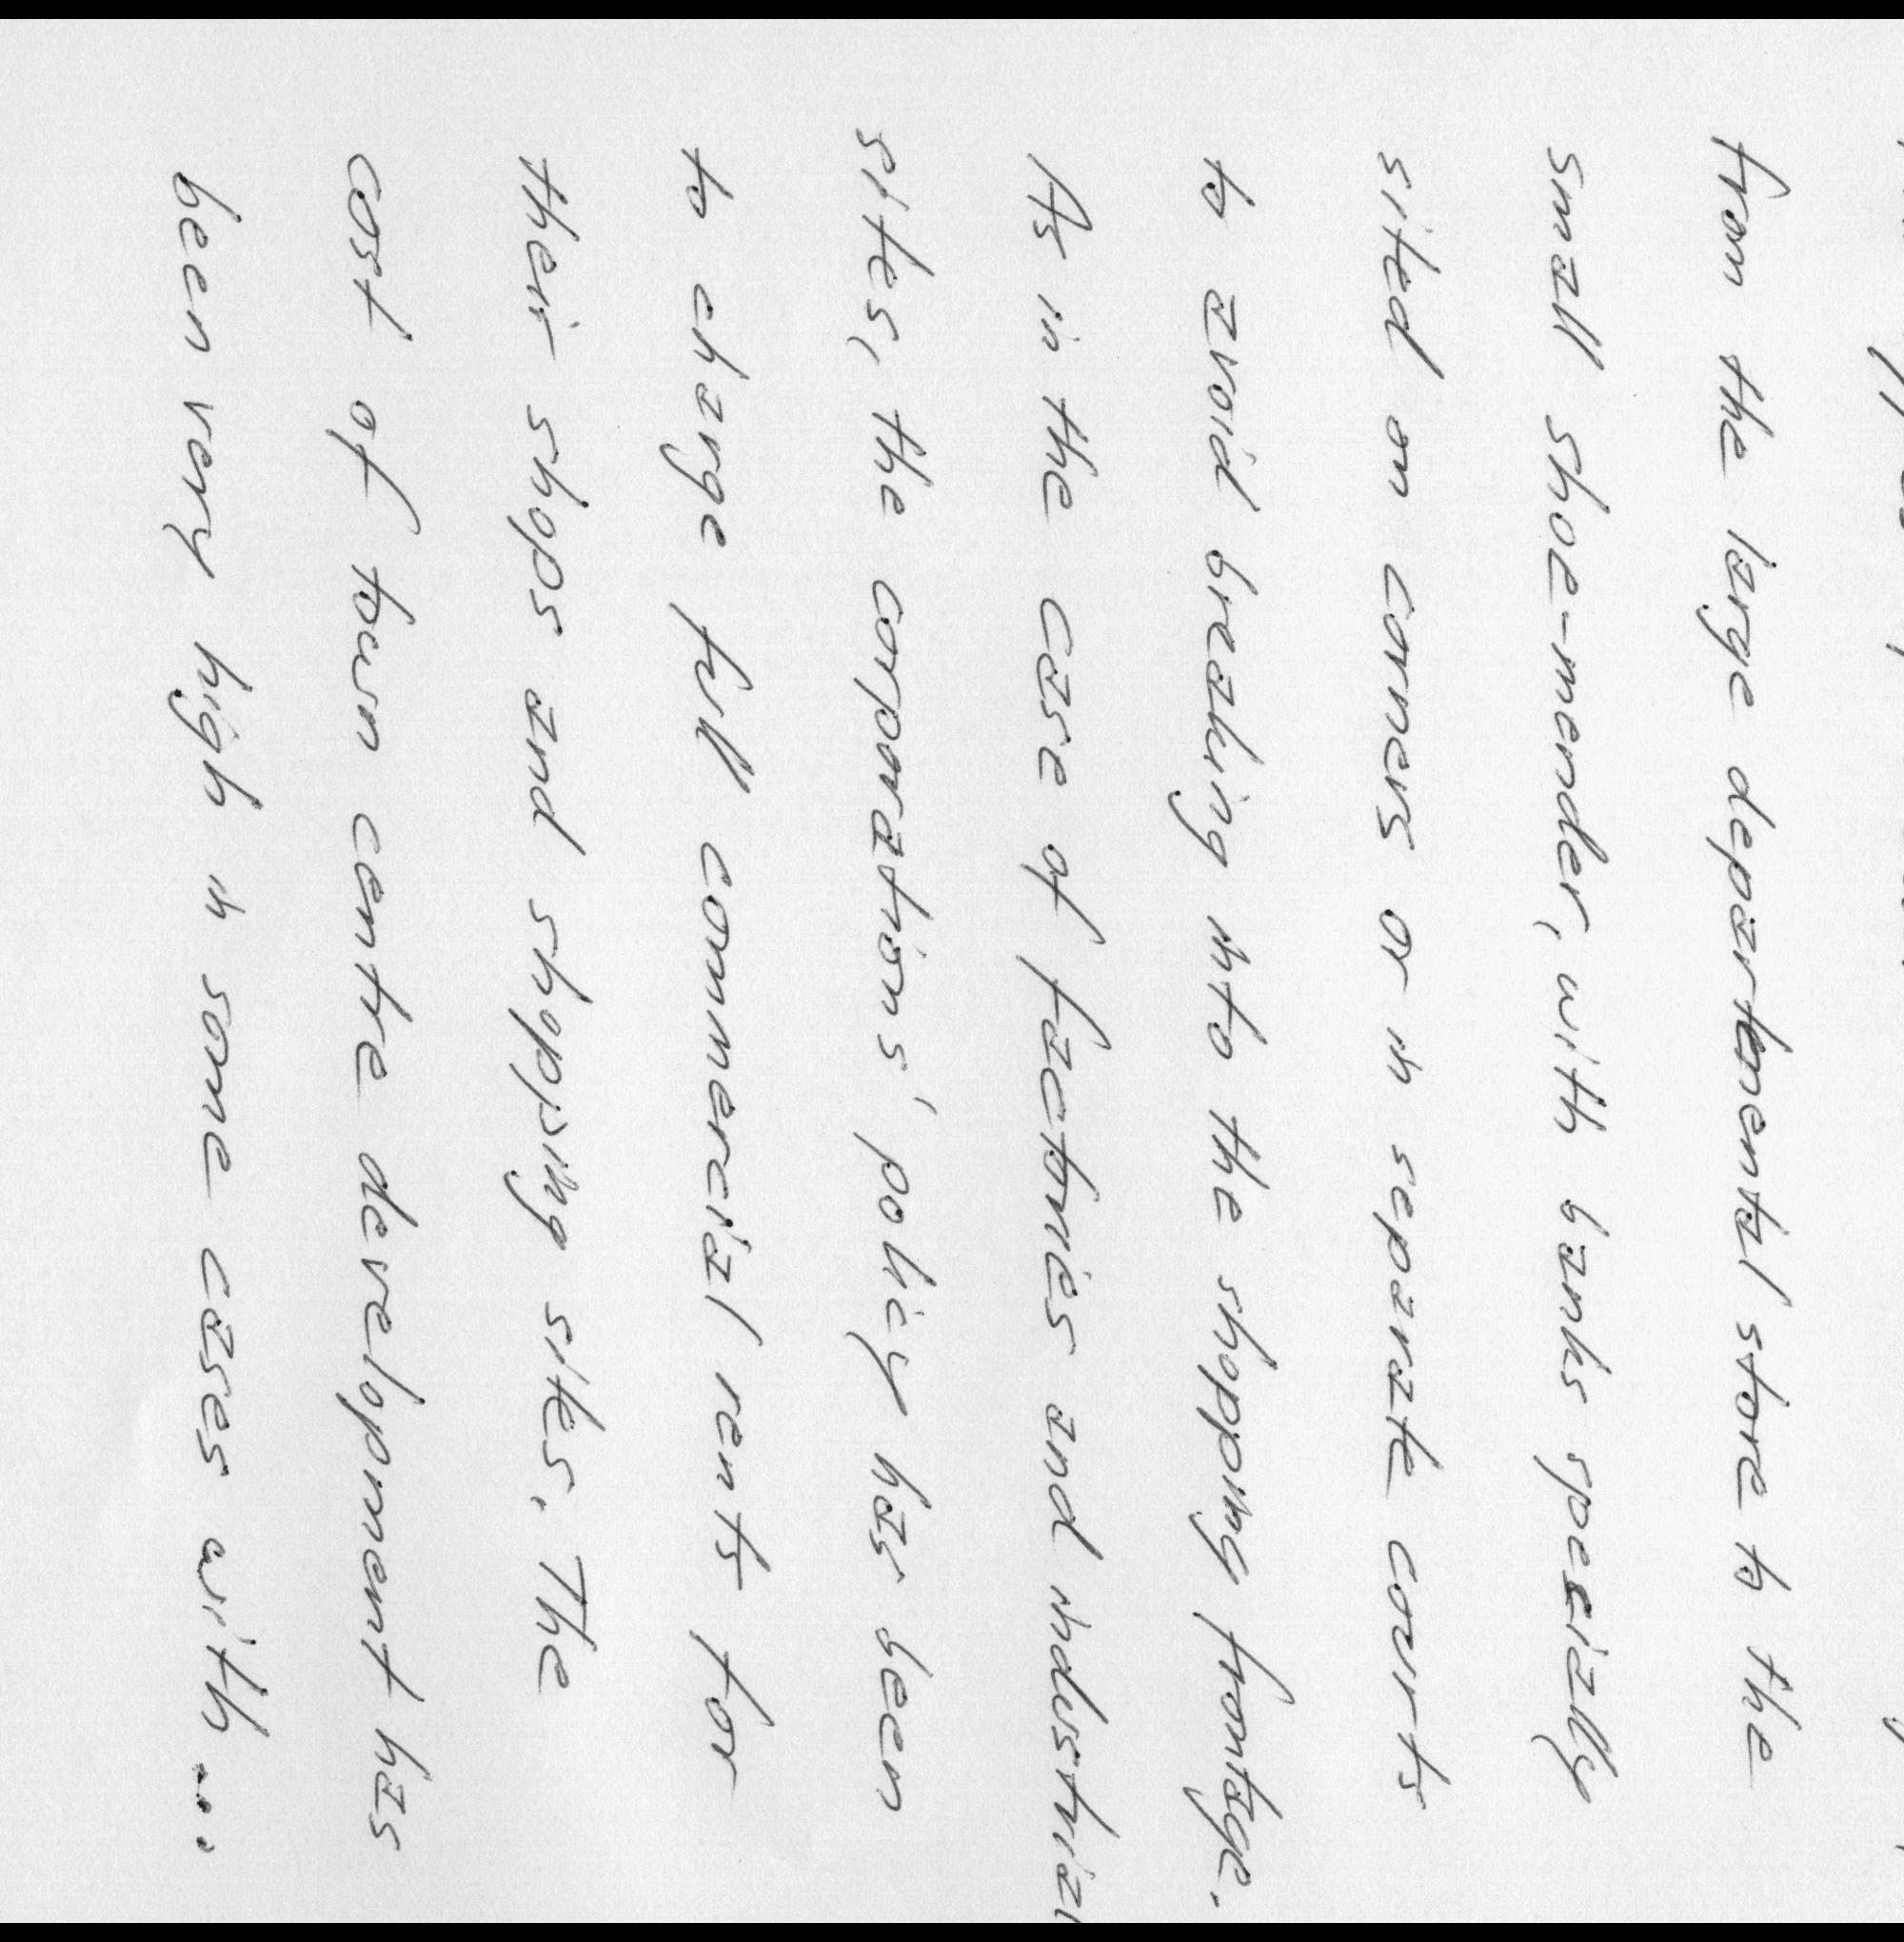 from the large departmental store to the
small shoe-mender, with banks specially
sited on corners or in separate courts
to avoid breaking into the shopping frontage.
As in the case of factories and industrial
sites, the corporations' policy has been
to charge full commercial rents for
their shops and shopping sites. The
cost of town centre development has
been very high in some cases with...